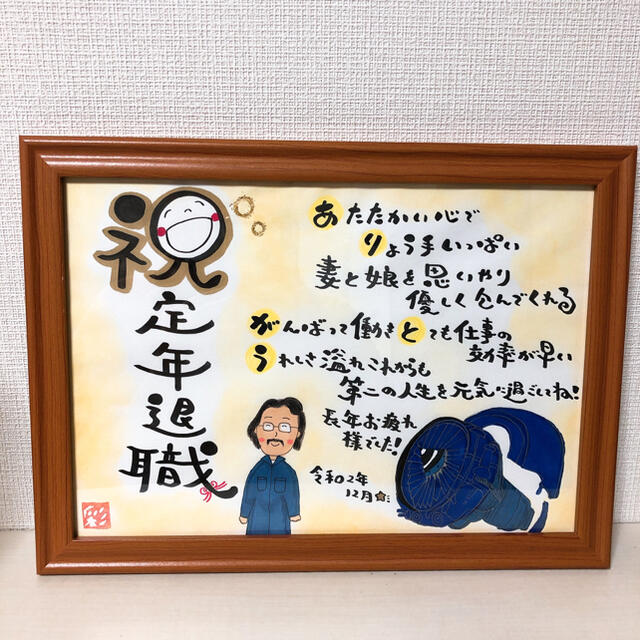 祝
定年退職
あたたかい心で
りょう手いっぱい
妻と娘を思いやり
優しく包んでくれる
がんばって働きとても仕事の
効率が早い
うれしさ溢れこれからも
第二の人生を元気に過ごしいね!
長年お疲れ
様でした!
令和2年
12月
彩